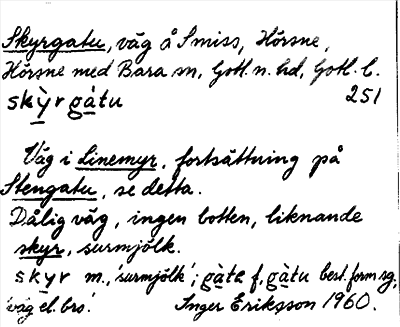 Skyrgatu, väg å Smiss, Hörsne,
Hörsne med Bara sn, Gotl. n. hd, Gotl. l.
skỳr gàtu 251
Väg i Linemyr, fortsättning på
Stengatu, se detta.
Dålig väg, ingen botten, liknande
skyr, surmjölk.
skyr m., 'surmjölk'; gàta f, gàtu best. form sg,
'väg el. bro'. Inger Eriksson 1960.